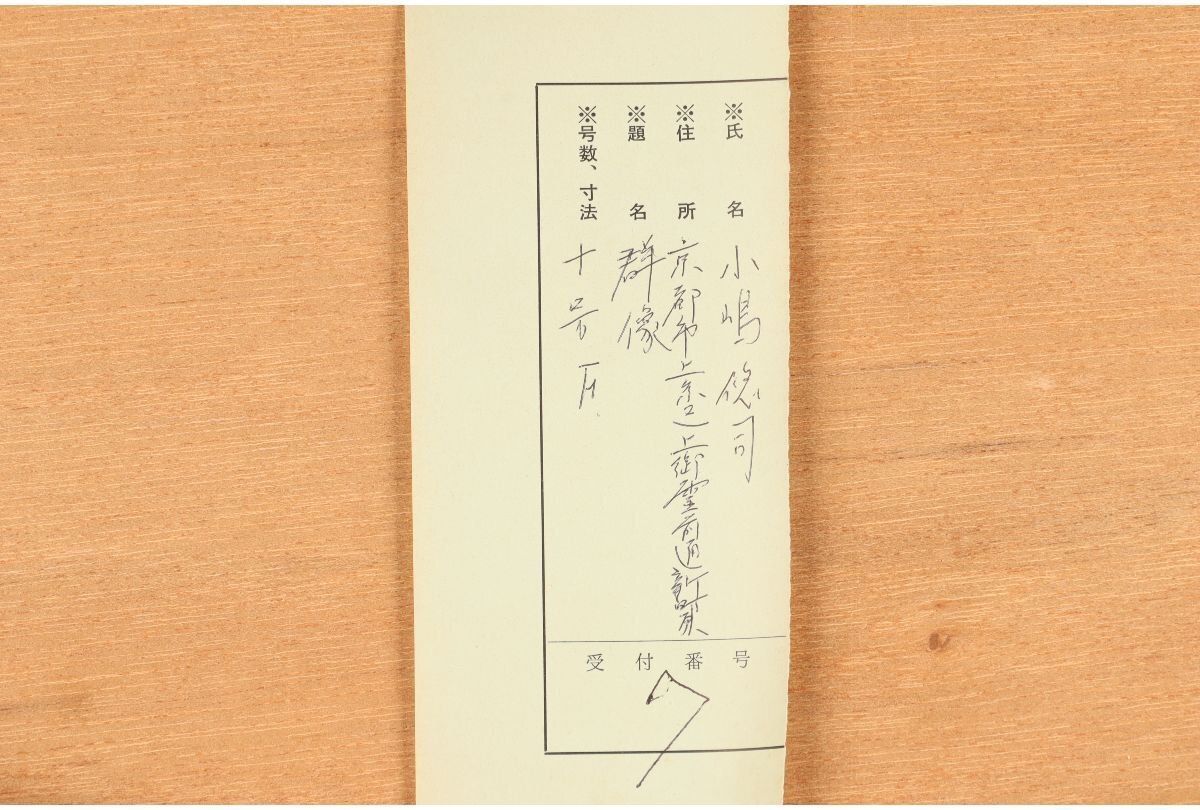 ※氏名 小嶋悠司
※住所 京都市上京区上御霊前通新町東
※題名 群像
※号数、寸法 十号
受付番号